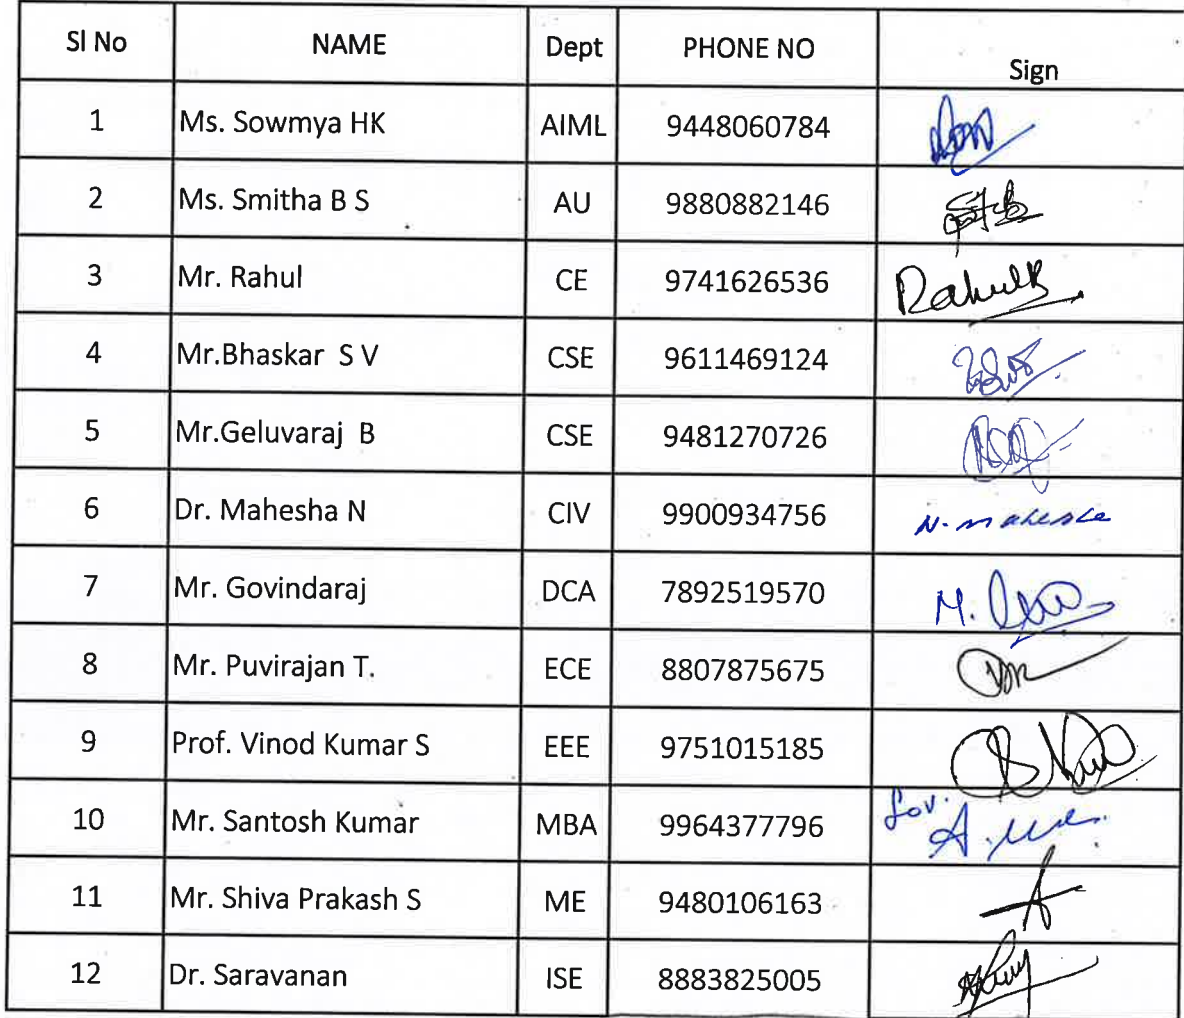 Sl No NAME Dept PHONE NO Sign
1 Ms. Sowmya HK AIML 9448060784
2 Ms. Smitha B S AU 9880882146
3 Mr. Rahul CE 9741626536 RahulB
4 Mr.Bhaskar S V CSE 9611469124
5 Mr.Geluvaraj B CSE 9481270726
6 Dr. Mahesha N CIV 9900934756 N. mahesha
7 Mr. Govindaraj DCA 7892519570 M.
8 Mr. Puvirajan T. ECE 8807875675
9 Prof. Vinod Kumar S EEE 9751015185
10 Mr. Santosh Kumar MBA 9964377796
11 Mr. Shiva Prakash S ME 9480106163
12 Dr. Saravanan ISE 8883825005